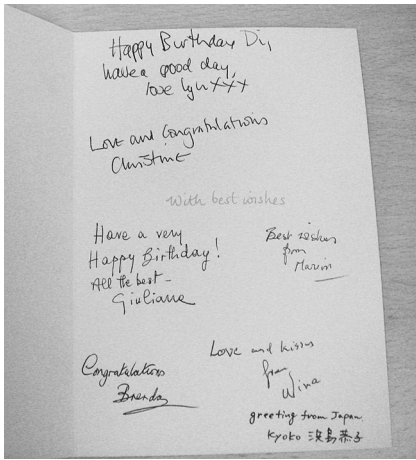 Happy Birthday Di,
have a good day,
love Lyn xxx
Love and Congratulations
Christine
With best wishes
Have a very
Happy Birthday!
All the best -
Giuliana
Best wishes
from
Marin
Congratulations
Brenda
Love and kisses
from
Nina
greeting from Japan.
Kyoko 恭子